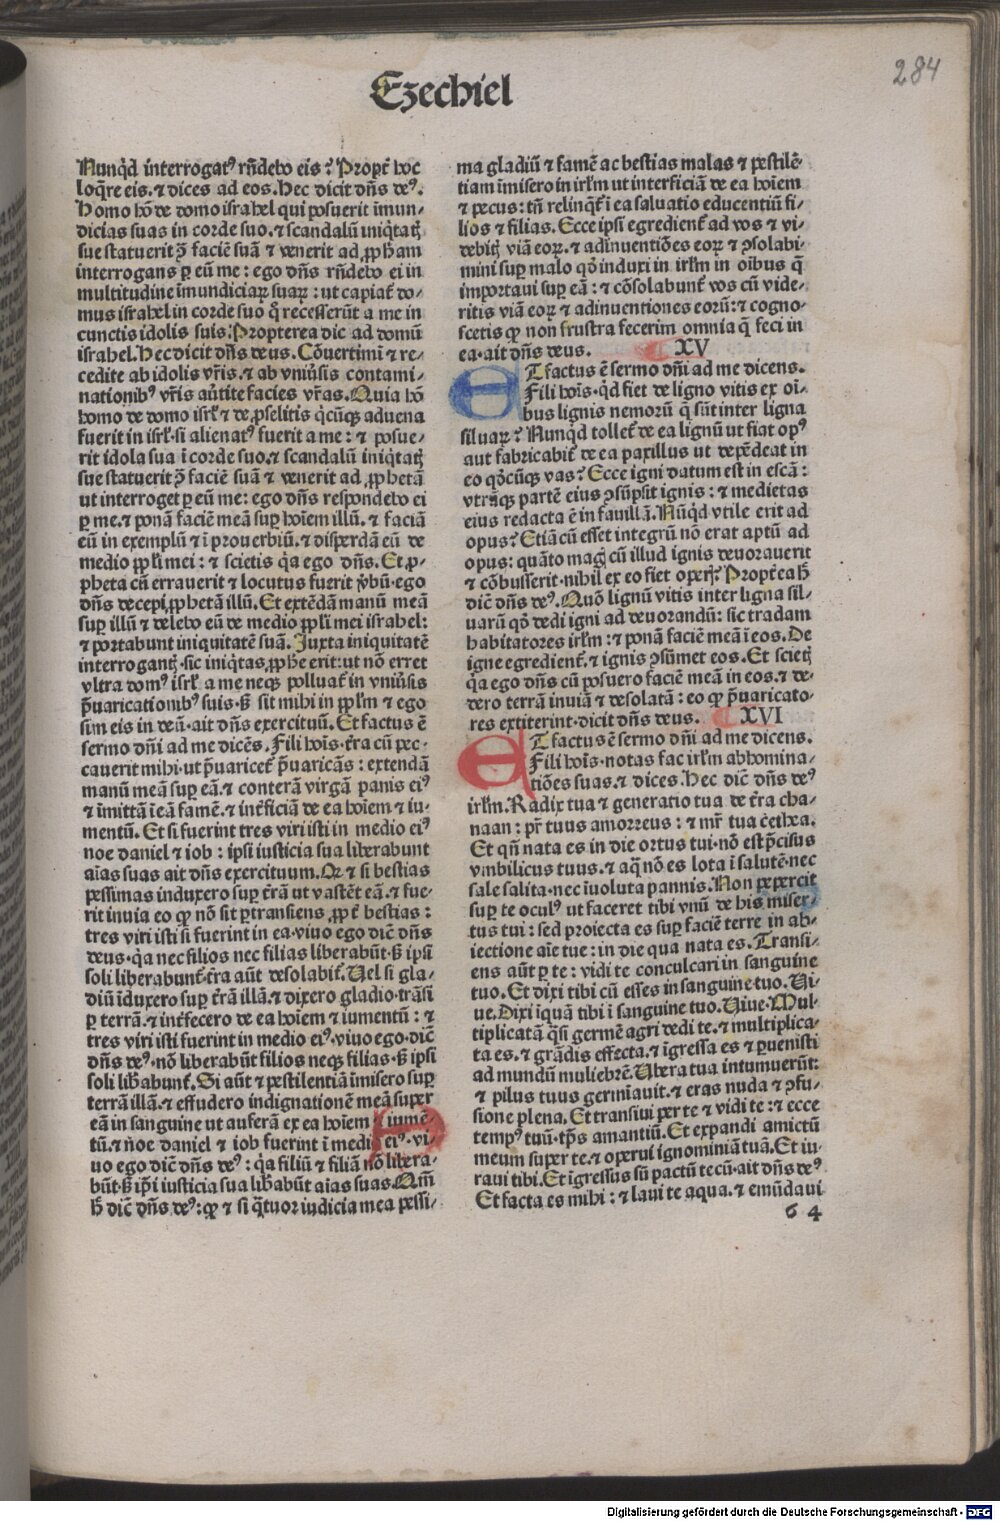 284
Ezechiel
Nunqͥd interrogatꝰ rñdebo eis? Propt̃ hoc
loq̃re eis.⁊ dices ad eos. Hec dicit dñs deꝰ.
Homo hõ de domo israhel qui posuerit ĩmun/
dicias suas in corde suo.⁊ scandalũ iniq̃tatꝭ
sue statuerit ↄ̃ faciẽ suã ⁊ venerit ad ꝓph̃am
interrogans ꝑ eũ me : ego dñs rñdebo ei in
multitudine ĩmundiciaꝝ suaꝝ : ut capiat̃ do/
mus israhel in corde suo qͦ recesserũt a me in
cunctis idolis suis. Propterea dic ad domũ
israhel. Hec dicit dñs deus. Cõvertimĩ ⁊ re/
cedite ab idolis vr̃is.⁊ ab vniũsis contami/
nationibꝰ vr̃is aũtite facies vr̃as. Quia hõ
homo de domo isrł ⁊ de ꝓselitis q̃cũqꝫ aduena
fuerit in isrł si alienatꝰ fuerit a me : ⁊ posue/
rit idola sua ĩ corde suo.⁊ scandalũ iniq̃tatꝭ
sue statuerit ↄ̃ faciẽ suã ⁊ venerit ad ꝓphetã
ut interroget ꝑ eũ me: ego dñs respondebo ei
ꝑ me.⁊ ponã faciẽ meã suꝑ hoĩem illũ.⁊ faciã
eũ in exemplũ ⁊ ĩ proverbiũ.⁊ disperdã eũ de
medio ppłi mei : ⁊ scietis q̃a ego dñs. Et ꝓ/
pheta cũ erraverit ⁊ locutus fuerit v̾bũ.ego
dñs decepi ꝓphetã illũ. Et extẽdã manũ meã
suꝑ illũ ⁊ delebo eũ de medio ppłi mei israhel:
⁊ portabunt iniquitatẽ suã. Juxta iniquitatẽ
interrogantꝭ.sic iniq̃tas ꝓph̃e erit:ut nõ erret
vltra domꝰ isrł a me neqꝫ polluat̃ in vniũsis
p̃uaricationibꝰ suis.sꝫ sit mihi in ppłm ⁊ ego
sim eis in deũ.ait dñs exercituũ. Et factus ẽ
sermo dñi ad me dicẽs. Fili hoĩs.t̃ra cũ pec/
caverit mihi.ut p̃uaricet̃ p̃uaricãs : extendã
manũ meã suꝑ eã.⁊ conterã virgã panis eiꝰ
⁊ ĩmittã ĩ eã famẽ.⁊ int̃ficiã de ea hoĩem ⁊ iu/
mentũ. Et si fuerint tres viri isti in medio eiꝰ
noe daniel ⁊ iob : ipsi iusticia sua liberabunt
aĩas suas ait dñs exercituum. Qꝛ ⁊ si bestias
pessimas induxero suꝑ t̃rã ut vastẽt eã.⁊ fue/
rit inuia eo ꝙ nõ sit ꝑtransiens ꝓpt̃ bestias :
tres viri isti si fuerint in ea.vivo ego dic̃ dñs
deus.q̃a nec filios nec filias liberabũt.sꝫ ipsi
soli liberabunt̃.t̃ra aũt desolabit̃. Vel si gla/
diũ ĩduxero suꝑ t̃rã illã.⁊ dixero gladio.trãsi
ꝑ terrã.⁊ int̃fecero de ea hoĩem ⁊ iumentũ : ⁊
tres viri isti fuerint in medio eiꝰ.vivo ego.dic̃
dñs deꝰ.nõ liberabũt filios neqꝫ filias.sꝫ ipsi
soli lib̾abunt̃. Si aũt ⁊ pestilentiã ĩmisero suꝑ
terrã illã.⁊ effudero indignationẽ meã super
eã in sanguine ut auferã ex ea hoĩem ⁊ iumẽ/
tũ.⁊ noe daniel ⁊ iob fuerint ĩ medio eiꝰ.vi/
uo ego dic̃ dñs deꝰ : q̃a filiũ ⁊ filiã nõ libera/
bũt.sꝫ ip̃i iusticia sua lib̾abũt aĩas suas. Qm̃
h̾ dic̃ dñs deꝰ: ꝙ ⁊ si q̃tuor iudicia mea pessi/
ma gladiũ ⁊ famẽ ac bestias malas ⁊ pestilẽ/
tiam ĩmisero in irłm ut interficiã de ea hoĩem
⁊ pecus : tñ relinq̃t̃ ĩ ea saluatio educentiũ fi/
lios ⁊ filias. Ecce ipsi egredient̃ ad vos ⁊ vi/
debitꝭ viã eoꝝ.⁊ adinuentiões eoꝝ ⁊ ↄsolabi/
mini suꝑ malo qͦ̃ induxi in irłm in oĩbus q̃
importaui suꝑ eã : ⁊ cõsolabunt̃ vos cũ vide/
ritis viã eoꝝ ⁊ adinuentiones eorũ: ⁊ cogno/
scetis ꝙ non frustra fecerim omnia q̃ feci in
ea.ait dñs deus. XV
ET factus ẽ sermo dñi ad me dicens.
Fili hoĩs.qͥd fiet de ligno vitis ex oĩ/
bus lignis nemorũ q̃ sũt inter ligna
siluaꝝ? Nunqͥd tollet̃ de ea lignũ ut fiat opꝰ
aut fabricabit̃ de ea paxillus ut depẽdeat in
eo qͦ̃cũqꝫ vas? Ecce igni datum est in escã :
vtrãqꝫ partẽ eius ↄsũpsit ignis : ⁊ medietas
eius redacta ẽ in fauillã. Nũqͥd vtile erit ad
opus? Etiã cũ esset integrũ nõ erat aptũ ad
opus: quãto magꝭ cũ illud ignis deuoraverit
⁊ cõbusserit.nihil ex eo fiet oꝑis? Propt̃ea h̾
dic̃ dñs deꝰ. Quõ lignũ vitis inter ligna sil/
uarũ qͦ̃ dedi igni ad deuorandũ: sic tradam
habitatores irłm : ⁊ ponã faciẽ meã ĩ eos. De
igne egredient̃.⁊ ignis ↄsũmet eos. Et scietꝭ
q̃a ego dñs cũ posuero faciẽ meã in eos.⁊ de/
dero terrã inuiã ⁊ desolatã : eo ꝙ p̃uaricato/
res extiterint.dicit dñs deus. XVI
ET factus ẽ sermo dñi ad me dicens.
Fili hoĩs.notas fac irłm abhomina/
tiões suas.⁊ dices. Hec dic̃ dñs deꝰ
irłm. Radix tua ⁊ generatio tua de t̃ra cha/
naan : pr̃ tuus amorreus : ⁊ mr̃ tua cethea.
Et qñ nata es in die ortus tui.nõ est p̃cisus
vmbilicus tuus.⁊ aq̃ nõ es lota ĩ salutẽ.nec
sale salita.nec ĩuoluta pannis. Non pepercit
suꝑ te oculꝰ ut faceret tibi vnũ de his miser/
tus tui : sed proiecta es suꝑ faciẽ terre in ab/
iectione aĩe tue : in die qua nata es. Transi/
ens aũt ꝑ te : vidi te conculcari in sanguine
tuo. Et dixi tibi cũ esses in sanguine tuo. Vi/
ue. Dixi ĩquã tibi ĩ sanguine tuo. Viue. Mul/
tiplicatã q̃si germẽ agri dedi te.⁊ multiplica/
ta es.⁊ grãdis effecta.⁊ ĩgressa es ⁊ ꝑuenisti
ad mundũ muliebrẽ. Vbera tua intumuerũt:
⁊ pilus tuus germĩauit.⁊ eras nuda ⁊ ↄfu/
sione plena. Et transiui per te ⁊ vidi te : ⁊ ecce
tempꝰ tuũ.tp̃s amantiũ. Et expandi amictũ
meum super te.⁊ operui ignominiã tuã. Et iu/
raui tibi. Et ĩgressus sũ pactũ tecũ.ait dñs deꝰ
Et facta es mihi : ⁊ laui te aqua.⁊ emũdaui
6 4
Digitalisierung gefördert durch die Deutsche Forschungsgemeinschaft - DFG